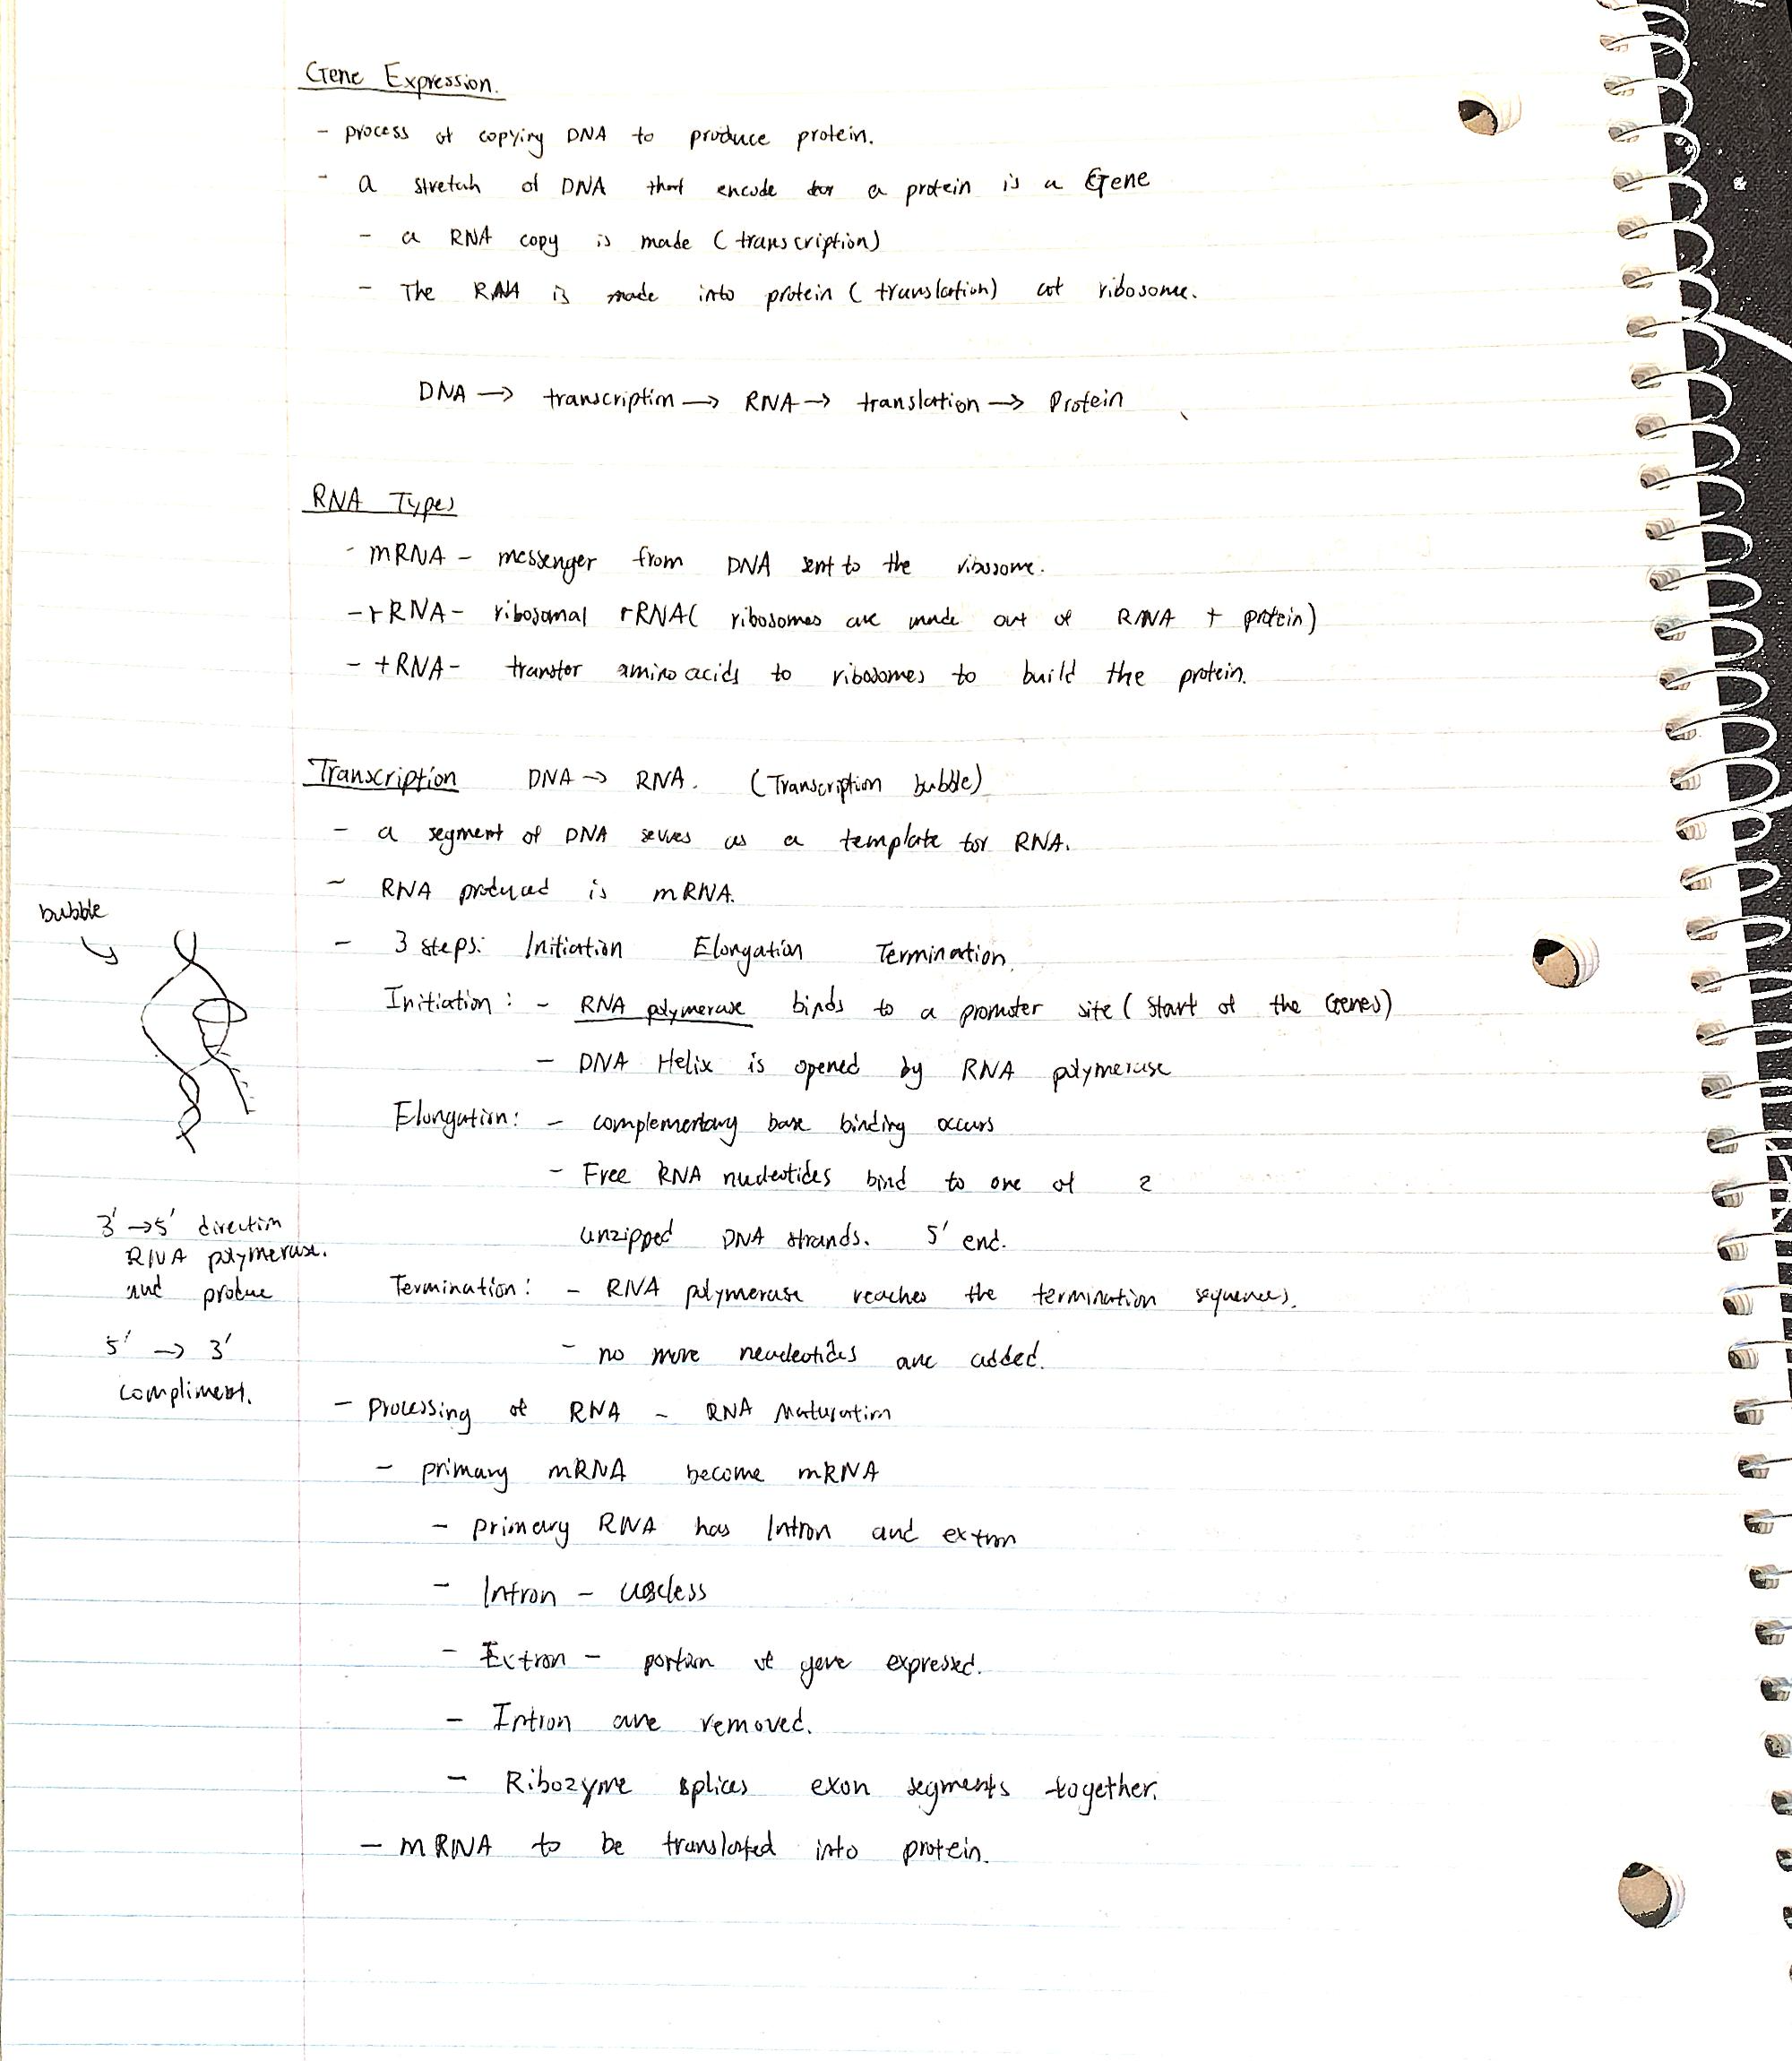 Gene Expression.
- process of copying DNA to produce protein.
- a stretch of DNA that encode for a protein is a Gene
- a RNA copy is made (transcription)
- The RNA is made into protein (translation) at ribosome.
DNA → transcription → RNA → translation → Protein
RNA Types
- mRNA - messenger from DNA sent to the ribosome.
- rRNA - ribosomal rRNA( ribosomes are made out of RNA + protein)
- tRNA - transfer amino acids to ribosomes to build the protein.
Transcription DNA → RNA. (Transcription bubble)
- a segment of DNA serves as a template for RNA.
- RNA produced is mRNA.
bubble
- 3 steps: Initiation Elongation Termination.
Initiation: - RNA polymerase binds to a promoter site (Start of the Genes)
- DNA Helix is opened by RNA polymerase
Elongation: - complementary base binding occurs
- Free RNA nucleotides bind to one of 2
unzipped DNA strands. 5' end.
3' → 5' direction
RNA polymerase.
and produe
5' → 3'
compliment.
Termination: - RNA polymerase reaches the termination sequences.
- no more neucleotides are added.
- Processing of RNA - RNA Maturation
- primary mRNA become mRNA
- primary RNA has Intron and extron
- Intron - useless
- Extron - portion of gene expressed.
- Intron are removed.
- Ribozyme splices exon segments together.
- mRNA to be translated into protein.